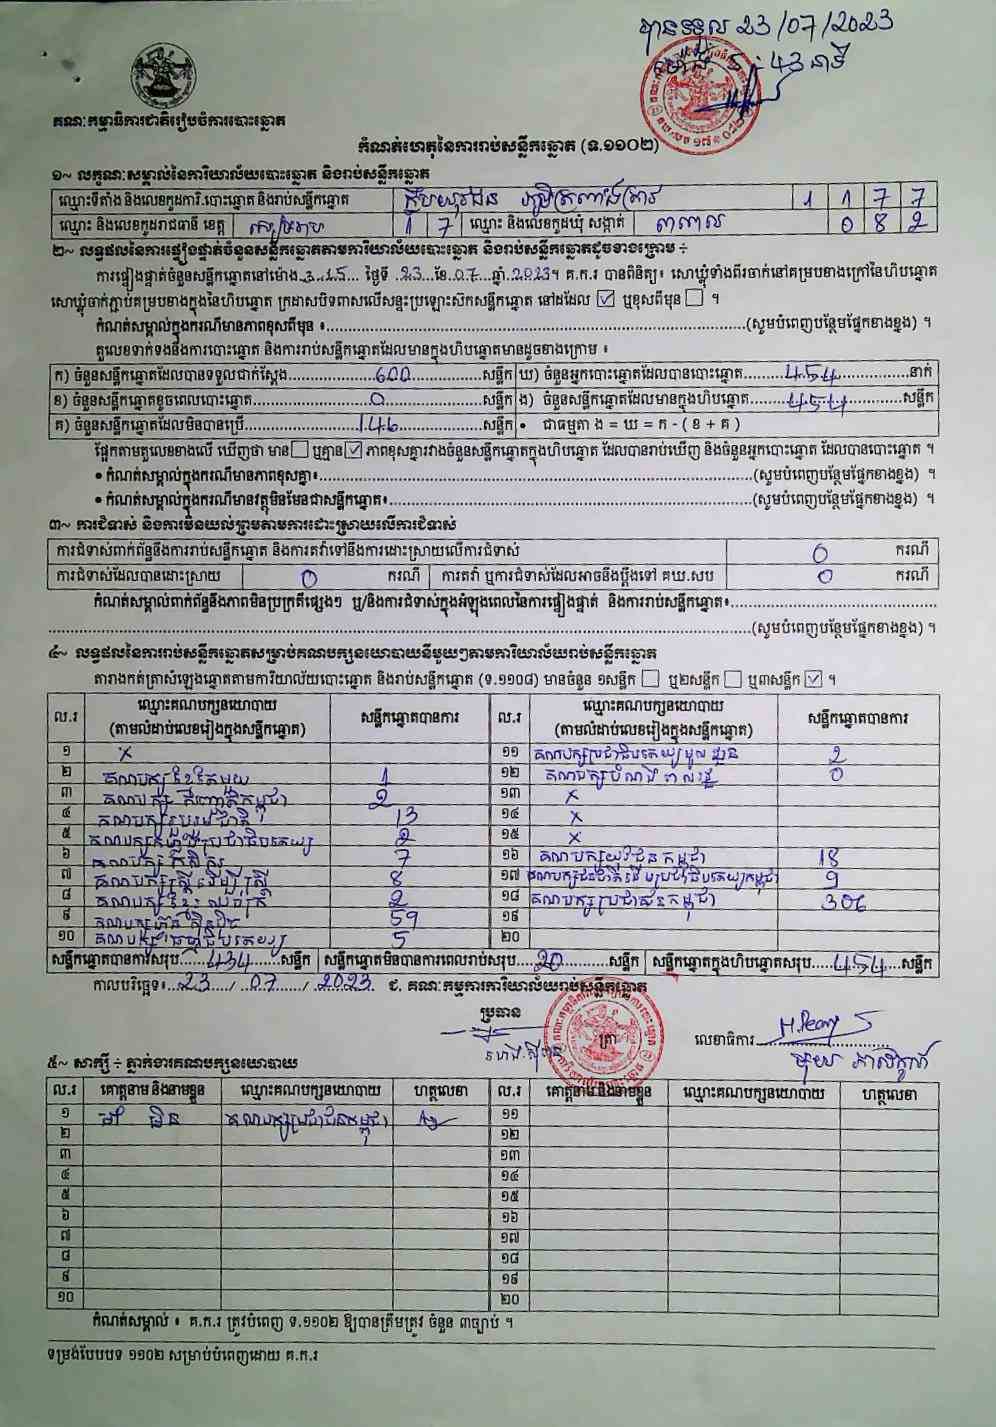 បានទទួល 23/07/2023
ម៉ោង 5:43 នាទី
គណៈកម្មាធិការជាតិរៀបចំការបោះឆ្នោត
កំណត់ហេតុនៃការរាប់សន្លឹកឆ្នោត (ទ.១១០២)
១~ លក្ខណៈសម្គាល់នៃការិយាល័យបោះឆ្នោត និងរាប់សន្លឹកឆ្នោត
ឈ្មោះទីតាំង និងលេខកូដការិ.បោះឆ្នោត និងរាប់សន្លឹកឆ្នោត 1 1 7 7
ឈ្មោះ និងលេខកូដរាជធានី ខេត្ត សៀមរាប 1 7 ឈ្មោះ និងលេខកូដឃុំ សង្កាត់ ពពេល 0 8 2
២~ លទ្ធផលនៃការផ្ទៀងផ្ទាត់ចំនួនសន្លឹកឆ្នោតតាមការិយាល័យបោះឆ្នោត និងរាប់សន្លឹកឆ្នោតដូចខាងក្រោម ÷
ការផ្ទៀងផ្ទាត់ចំនួនសន្លឹកឆ្នោតនៅម៉ោង 3:15 ថ្ងៃទី 23 ខែ 07 ឆ្នាំ 2023។ គ.ក.រ បានពិនិត្យ៖ សោឃ្លុំទាំងពីរចាក់នៅគម្របខាងក្រៅនៃហិបឆ្នោត
សោឃ្លុំចាក់ភ្ជាប់គម្របខាងក្នុងនៃហិបឆ្នោត ក្រដាសបិទពាសលើសន្ទះប្រឡោះស៊កសន្លឹកឆ្នោត នៅដដែល ☑ ឬខុសពីមុន ☐ ។
កំណត់សម្គាល់ក្នុងករណីមានភាពខុសពីមុន ៖ (សូមបំពេញបន្ថែមផ្នែកខាងខ្នង) ។
តួលេខទាក់ទងនឹងការបោះឆ្នោត និងការរាប់សន្លឹកឆ្នោតដែលមានក្នុងហិបឆ្នោតមានដូចខាងក្រោម ៖
ក) ចំនួនសន្លឹកឆ្នោតដែលបានទទួលជាក់ស្ដែង 600 សន្លឹក ឃ) ចំនួនអ្នកបោះឆ្នោតដែលបានបោះឆ្នោត 454 នាក់
ខ) ចំនួនសន្លឹកឆ្នោតខូចពេលបោះឆ្នោត 0 សន្លឹក ង) ចំនួនសន្លឹកឆ្នោតដែលមានក្នុងហិបឆ្នោត 454 សន្លឹក
គ) ចំនួនសន្លឹកឆ្នោតដែលមិនបានប្រើ 146 សន្លឹក • ជាធម្មតា ង = ឃ = ក - ( ខ + គ )
ផ្អែកតាមតួលេខខាងលើ ឃើញថា មាន ☐ ឬគ្មាន ☑ ភាពខុសគ្នារវាងចំនួនសន្លឹកឆ្នោតក្នុងហិបឆ្នោត ដែលបានរាប់ឃើញ និងចំនួនអ្នកបោះឆ្នោត ដែលបានបោះឆ្នោត ។
• កំណត់សម្គាល់ក្នុងករណីមានភាពខុសគ្នា៖ (សូមបំពេញបន្ថែមផ្នែកខាងខ្នង) ។
• កំណត់សម្គាល់ក្នុងករណីមានវត្ថុមិនមែនជាសន្លឹកឆ្នោត៖ (សូមបំពេញបន្ថែមផ្នែកខាងខ្នង) ។
៣~ ការជំទាស់ និងការមិនយល់ព្រមតាមការដោះស្រាយលើការជំទាស់
ការជំទាស់ពាក់ព័ន្ធនឹងការរាប់សន្លឹកឆ្នោត និងការតវ៉ាទៅនឹងការដោះស្រាយលើការជំទាស់ 0 ករណី
ការជំទាស់ដែលបានដោះស្រាយ 0 ករណី ការតវ៉ា ឬការជំទាស់ដែលអាចនឹងប្ដឹងទៅ គឃ.សប 0 ករណី
កំណត់សម្គាល់ពាក់ព័ន្ធនឹងភាពមិនប្រក្រតីផ្សេងៗ ឬ/និងការជំទាស់ក្នុងអំឡុងពេលនៃការផ្ទៀងផ្ទាត់ និងការរាប់សន្លឹកឆ្នោត៖
(សូមបំពេញបន្ថែមផ្នែកខាងខ្នង) ។
៤~ លទ្ធផលនៃការរាប់សន្លឹកឆ្នោតសម្រាប់គណបក្សនយោបាយនីមួយៗតាមការិយាល័យរាប់សន្លឹកឆ្នោត
តារាងកត់ត្រាសំឡេងឆ្នោតតាមការិយាល័យបោះឆ្នោត និងរាប់សន្លឹកឆ្នោត (ទ.១១០៨) មានចំនួន ១សន្លឹក ☐ ឬ២សន្លឹក ☐ ឬ៣សន្លឹក ☑ ។
ល.រ ឈ្មោះគណបក្សនយោបាយ (តាមលំដាប់លេខរៀងក្នុងសន្លឹកឆ្នោត) សន្លឹកឆ្នោតបានការ ល.រ ឈ្មោះគណបក្សនយោបាយ (តាមលំដាប់លេខរៀងក្នុងសន្លឹកឆ្នោត) សន្លឹកឆ្នោតបានការ
១ x ១១ គណបក្សប្រជាធិបតេយ្យមូលដ្ឋាន 2
២ គណបក្សខ្មែរតែមួយ 1 ១២ គណបក្សបំណងរាស្ត្រ 0
៣ គណបក្ស សញ្ជាតិកម្ពុជា 2 ១៣ x
៤ គណបក្សរួបរួមជាតិ 13 ១៤ x
៥ គណបក្សសំបុកឃ្មុំប្រជាធិបតេយ្យ 2 ១៥ x
៦ គណបក្ស កសិករ 7 ១៦ គណបក្សយុវជនកម្ពុជា 18
៧ គណបក្សស្ត្រីដើម្បីស្ត្រី 8 ១៧ គណបក្សជនជាតិដើមប្រជាធិបតេយ្យកម្ពុជា 9
៨ គណបក្សខ្មែរឈប់ក្រ 2 ១៨ គណបក្សប្រជាជនកម្ពុជា 306
៩ គណបក្សហ៊្វុនស៊ិនប៉ិច 59 ១៩
១០ គណបក្សធម្មាធិបតេយ្យ 5 ២០
សន្លឹកឆ្នោតបានការសរុប 434 សន្លឹក សន្លឹកឆ្នោតមិនបានការពេលរាប់សរុប 20 សន្លឹក សន្លឹកឆ្នោតក្នុងហិបឆ្នោតសរុប 454 សន្លឹក
កាលបរិច្ឆេទ៖ 23 / 07 / 2023 ជ. គណៈកម្មការការិយាល័យរាប់សន្លឹកឆ្នោត
ប្រធាន ត្រា លេខាធិការ
៥~ សាក្សី ÷ ភ្នាក់ងារគណបក្សនយោបាយ
ល.រ គោត្តនាម និងនាមខ្លួន ឈ្មោះគណបក្សនយោបាយ ហត្ថលេខា ល.រ គោត្តនាម និងនាមខ្លួន ឈ្មោះគណបក្សនយោបាយ ហត្ថលេខា
១ គណបក្សប្រជាជនកម្ពុជា ១១
២ ១២
៣ ១៣
៤ ១៤
៥ ១៥
៦ ១៦
៧ ១៧
៨ ១៨
៩ ១៩
១០ ២០
កំណត់សម្គាល់ ៖ គ.ក.រ ត្រូវបំពេញ ទ.១១០២ ឱ្យបានត្រឹមត្រូវ ចំនួន ៣ច្បាប់ ។
ទម្រង់បែបបទ ១១០២ សម្រាប់បំពេញដោយ គ.ក.រ